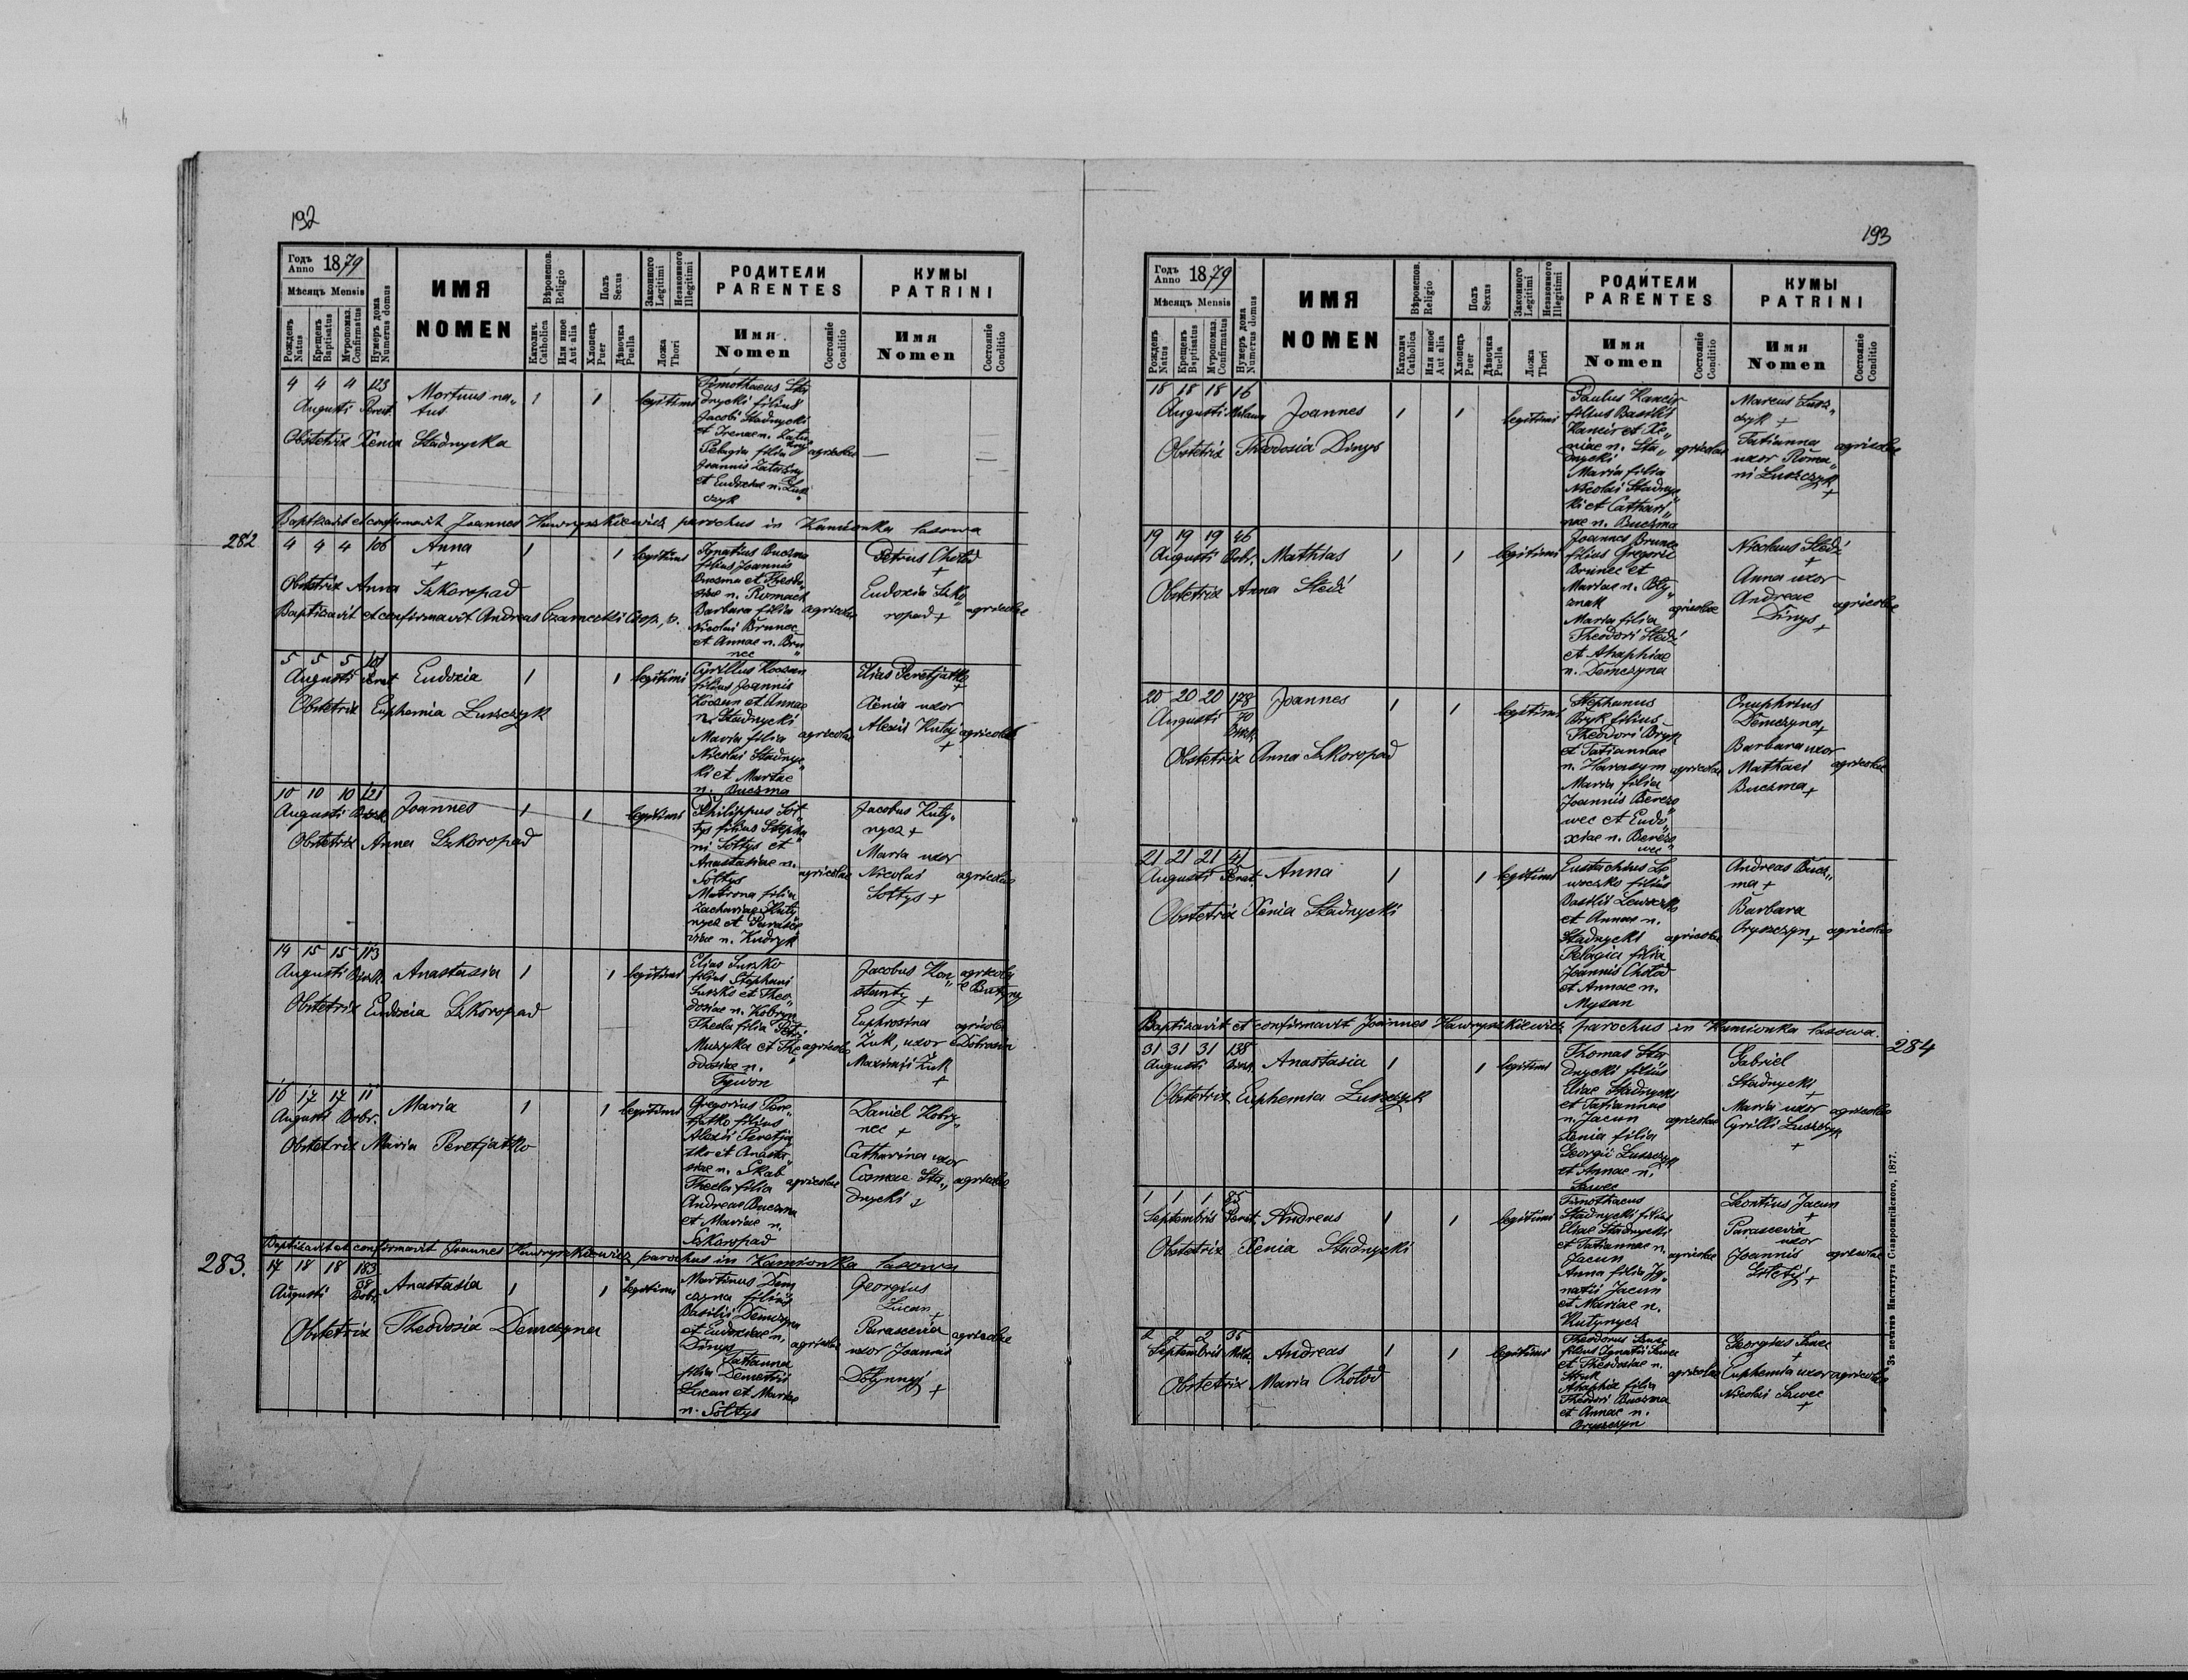 192
Годъ Anno 1879
Мѣсяцъ Mensis
Рожденъ Natus
Крещенъ Baptisatus
Мѵропомаз. Confirmatus
Нумеръ дома Numerus domus
ИМЯ NOMEN
Вѣроиспов. Religio
Католич. Catholica
Или иное Aut alia
Полъ Sexus
Хлопець Puer
Дѣвочка Puella
Законного Legitimi
Незаконного Illegitimi
Ложа Thori
РОДИТЕЛИ PARENTES
Имя Nomen
Состояніе Conditio
КУМЫ PATRINI
Имя Nomen
Состояніе Conditio
4 4 4 123
Augusti Perat.
Mortuus na„
tus
1 1 legitimi
Timothaeus Sta
dnycki filius
Jacobi Stadnycki
et Irenae n.
Pelagia filia agricolae
Joannis
et Eudoxiae n. Lusz
czyk
Obstetrix Xenia Stadnycka
Baptizavit et confirmavit Joannes Hawryszkiewicz parochus in Kamionka lasowa
282
4 4 4 106
Anna
+
1 1 legitimi
Ignatius Buczma
filius Joannis
Buczma et Theodo„
siae n. Romach
Barbara filia agricolae
Nicolai Brunec
et Annae n. Bru„
nec
Petrus Chołod
+
Eudoxia Szko„
ropad + agricolae
Obstetrix Anna Szkoropad
Baptizavit et confirmavit Andreas Czarnecki
5 5 5 101
Augusti Perat.
Eudoxia
1 1 legitimi
Cyrillus Koczan
filius Joannis
Koczan et Annae
n. Stadnycki
Maria filia agricolae
Nicolai Stadnyc„
ki et Mariae
n. Buczma
Elias Peretjatko
+
Xenia uxor
Alexii Kutyj agricolae
+
Obstetrix Euphemia Luszczyk
10 10 10 121
Augusti
Joannes
1 1 legitimi
Philippus Soł„
tys filius Stepha„
ni Sołtys et
Anastasiae n.
Sołtys agricolae
Matrona filia
Zachariae Huty
nycz et Parasce
viae n. Kudryk
Jacobus Huty„
nycz +
Maria uxor
Nicolai agricolae
Sołtys +
Obstetrix Anna Szkoropad
14 15 15 113
Augusti
Anastasia
1 1 legitimi
Elias Suszko
filius Stephani
Suszko et Theo„
dosiae n. Kobryn
Thecla filia Petri
Muzyka et The„ agricolae
odosiae n.
Tywon
Jacobus Kon„ agricola
stanty + e Butyny
Euphrosina agricolae
Żuk, uxor e Dobrosin
Maximi Żuk
+
Obstetrix Eudoxia Szkoropad
16 17 17 11
Augusti Bobr.
Maria
1 1 legitimi
Gregorius Pere„
tjatko filius
Alexii Peretja
tko et Anasta„
siae n. Skab
Thecla filia agricolae
Andreas Buczma
et Mariae n.
Szkoropad
Daniel Kobry„
nec +
Catharina uxor
Cosmae Sta„ agricolae
dnycki +
Obstetrix Maria Peretjatko
Baptizavit et confirmavit Joannes Hawryszkiewicz parochus in Kamionka lasowa
283.
17 18 18 183
58
Augusti Bobr.
Anastasia
1 1 legitimi
Martinus Dem
czyna filius
Basilii Demczyna
et Eudoxiae n.
Dinys agricolae
Tatianna
filia Demetrii
Lucan et Mariae
n. Sołtys
Georgius
Lucan +
Parascevia agricolae
uxor Joannis
Dołynnyj +
Obstetrix Theodosia Demczyna
193
Годъ Anno 1879
Мѣсяцъ Mensis
Рожденъ Natus
Крещенъ Baptisatus
Мѵропомаз. Confirmatus
Нумеръ дома Numerus domus
ИМЯ NOMEN
Вѣроиспов. Religio
Католич Catholica
Или иное Aut alia
Полъ Sexus
Хлопець Puer
Дѣвочка Puella
Законного Legitimi
Незаконного Illegitimi
Ложа Thori
РОДИТЕЛИ PARENTES
Имя Nomen
Состояніе Conditio
КУМЫ PATRINI
Имя Nomen
Состояніе Conditio
18 18 18 16
Augusti
Joannes
1 1 legitimi
Paulus Kancir
filius Basilii
Kancir et Xe„
niae n. Sta„ agricolae
dnycki
Maria filia
Nicolai Stadnyc
ki et Cathari„
nae n. Buczma
Marcus Lusz„
czyk +
Tatianna agricolae
uxor Roma„
ni Luszczyk
+
Obstetrix Theodosia Dinys
19 19 19 46
Augusti Bobr.
Mathias
1 1 legitimi
Joannes Brunec
filius Gregorii
Brunec et
Mariae n. Bly„
znak agricolae
Maria filia
Theodori Śledź
et Ahaphiae
n. Demczyna
Nicolaus Śledź
+
Anna uxor
Andreae agricolae
Dinys +
Obstetrix Anna Śledź
20 20 20 178
70
Augusti
Joannes
1 1 legitimi
Stephanus
Bryk filius
Theodori Bryk
et Tatiannae
n. Harasym agricolae
Maria filia
Joannis Berezo
wec et Eudo„
xiae n. Berezo„
wec
Onuphrius
Demczyna +
Barbara uxor
Mathaei agricolae
Buczma +
Obstetrix Anna Szkoropad
21 21 21 41
Augusti Perat.
Anna
1 1 legitimi
Eustachius Le
woczko filius
Basilii Lewoczko
et Annae n.
Stadnycki agricolae
Pelagia filia
Joannis Chołod
et Annae n.
Mysan
Andreas Bucz„
ma +
Barbara
Oryszczyn + agricolae
Obstetrix Xenia Stadnycki
Baptizavit et confirmavit Joannes Hawryszkiewicz parochus in Kamionka lasowa.
284
31 31 31 138
Augusti
Anastasia
1 1 legitimi
Thomas Sta
dnycki filius
Eliae Stadnycki
et Tatiannae
n. Jacun agricolae
Xenia filia
Georgii Luszczyk
et Annae n.
Sawec
Gabriel
Stadnycki +
Maria uxor agricolae
Cyrilli Luszczyk
+
Obstetrix Euphemia Luszczyk
1 1 1 85
Septembris Perat.
Andreas
1 1 legitimi
Timothaeus
Stadnycki filius
Eliae Stadnycki
et Tatiannae n.
Jacun agricolae
Anna filia Ig„
natii Jacun
et Mariae n.
Hutynycz
Leontius Jacun
+
Parascevia
uxor
Joannis agricolae
+
Obstetrix Xenia Stadnycki
2 2 2 35
Septembris
Andreas
1 1 legitimi
Theodorus Sawec
filius Ignatii Sawec
et Theodosiae n.
agricolae
Ahaphia filia
Theodori Buczma
et Annae n.
Oryszczyn
Georgius Sawec
+
Euphemia uxor agricolae
Nicolai Sawec
+
Obstetrix Maria Chołod
Зъ печатнѣ Института Ставропигійского, 1877.